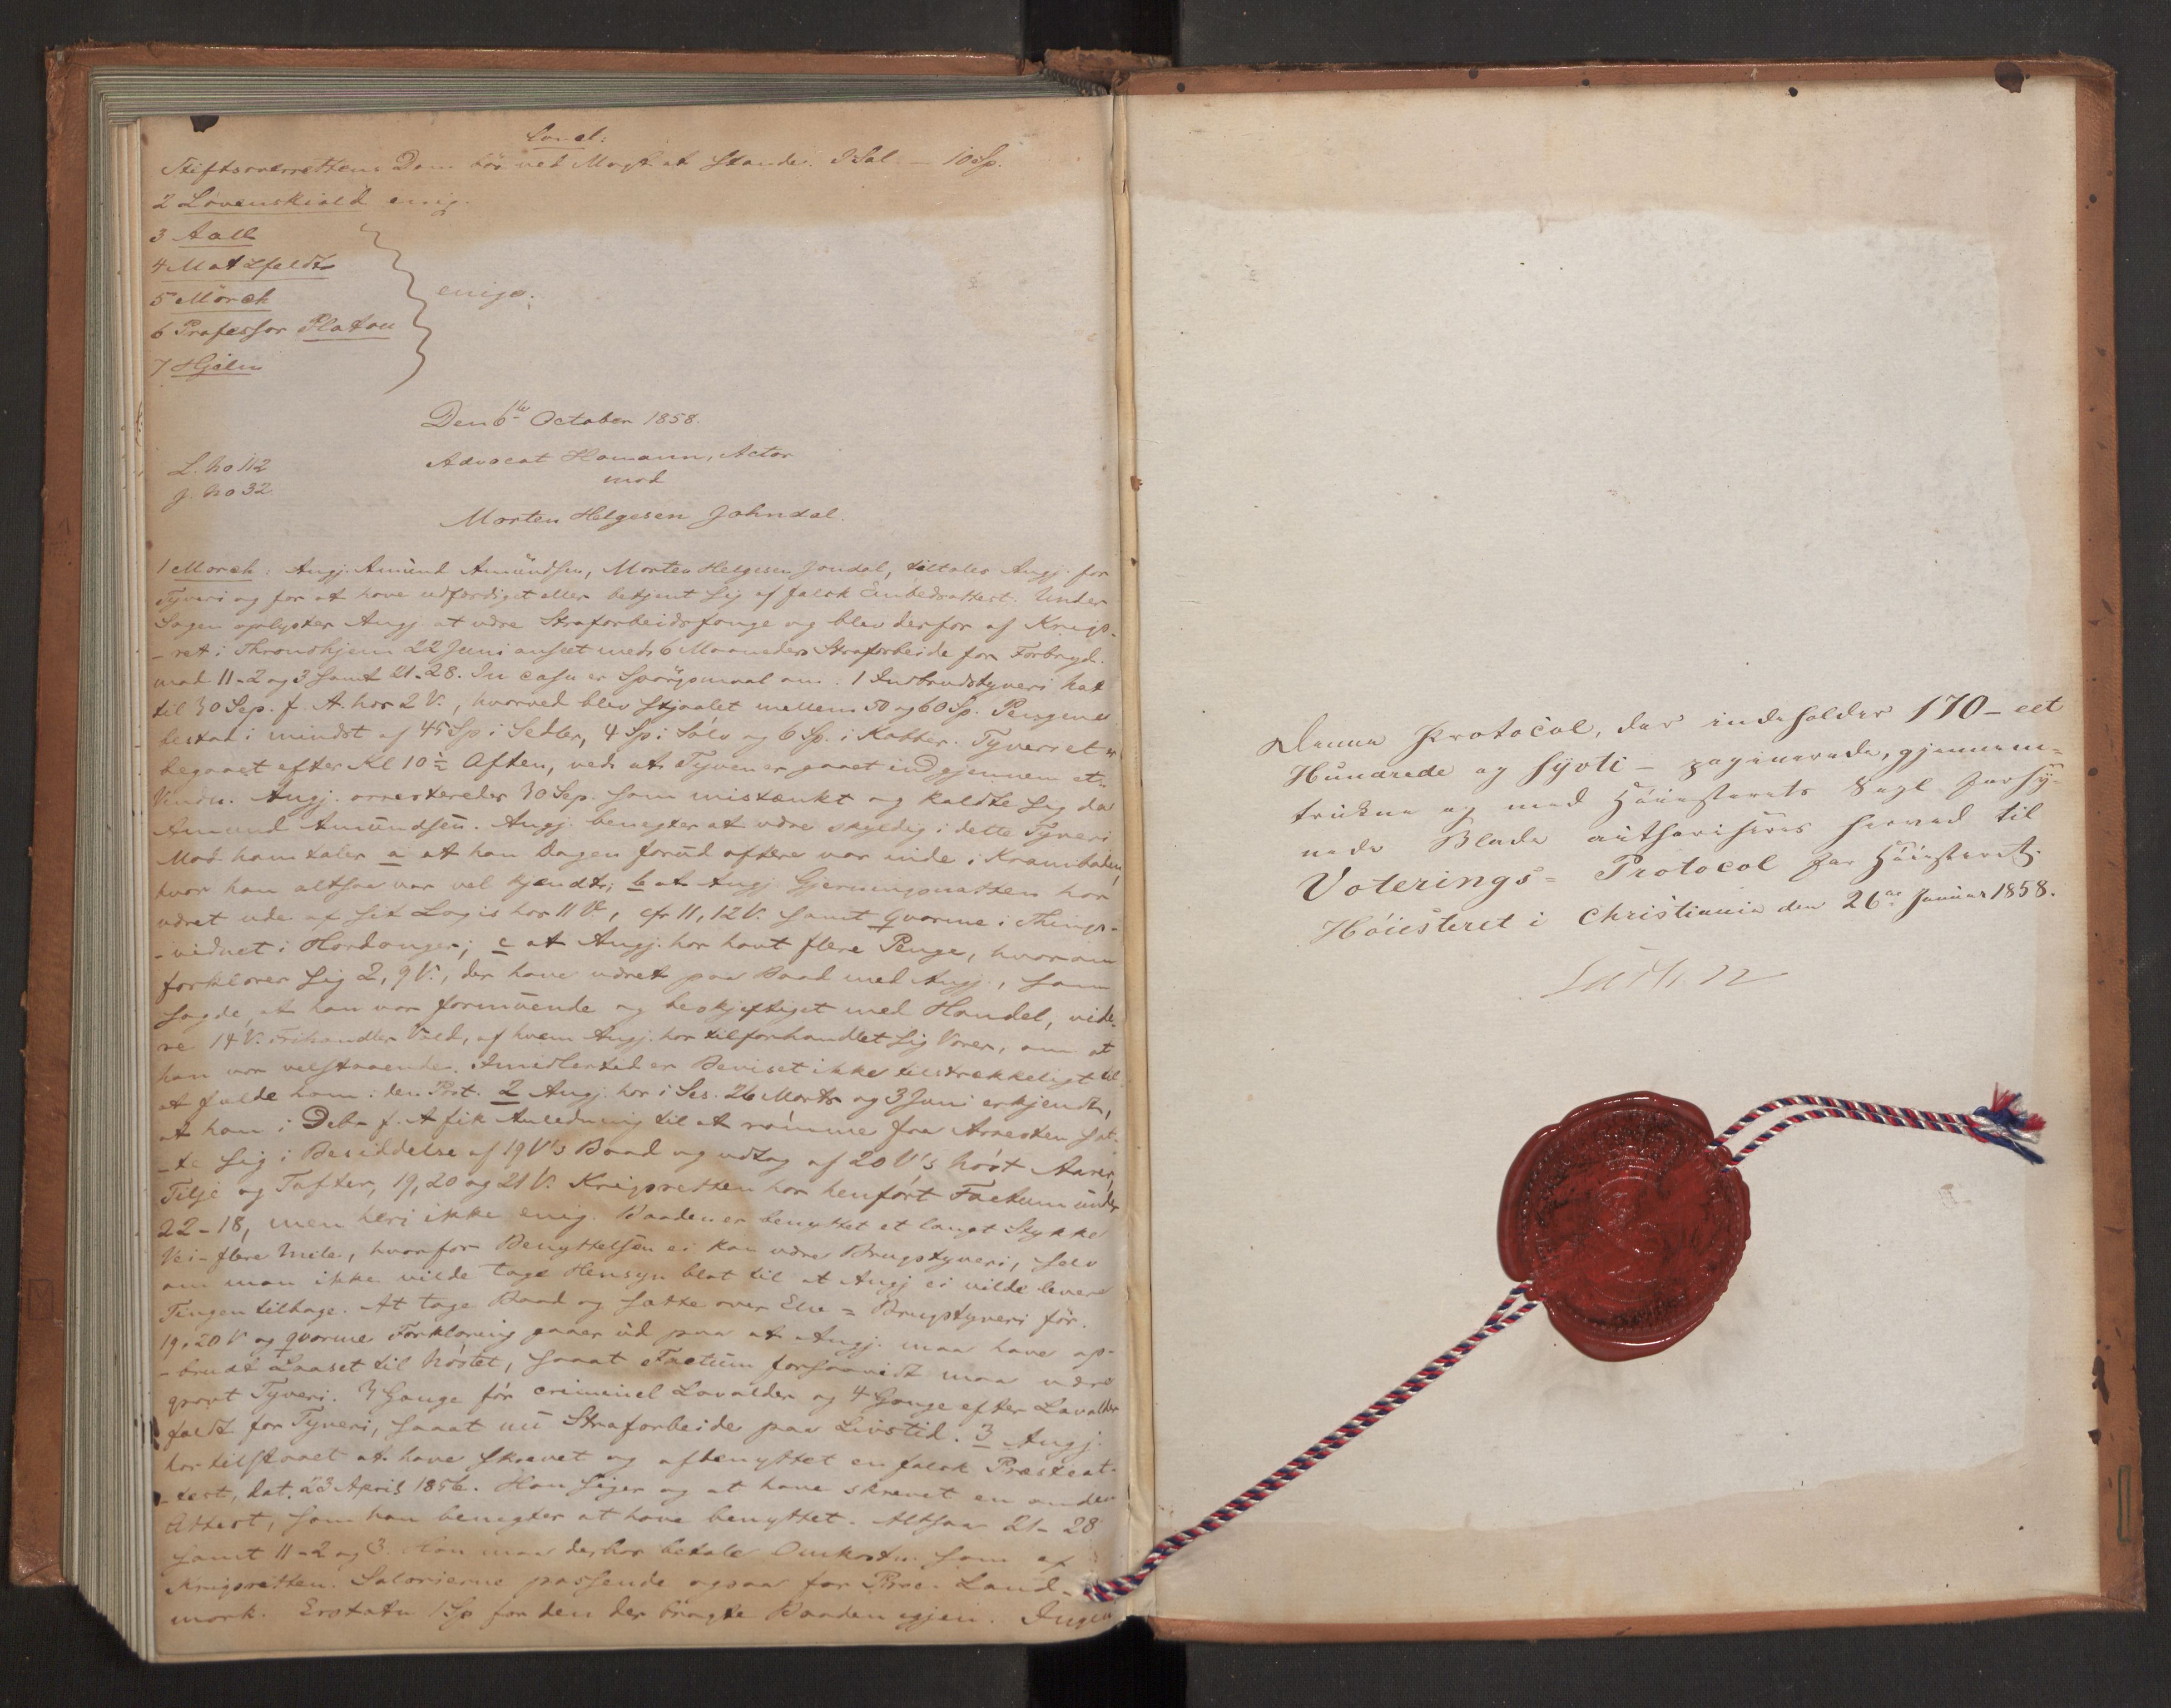 Concl:
Stiftsoverrettens Dom bör ved Magt at stande. I Sal. – 10 Sp.
2 Løvenskiold enig.
3 Aall
4 Motzfeldt
5 Mörch
6 Professor Platou
7 Hjelm
enige.
Den 6te October 1858.
L. No 112
J. No 32.
Advocat Homann, Actor
mod
Morten Helgesen Johndal.
1 Morch: Angj. Amund Amundsen, Morten Helgesen Jondal, tiltales Angj. for
Tyveri og for at have udfærdiget eller betjent sig af falsk Embedsattest. Under
Sagen oplystes Angj at være Strafarbeidsfange og blev derfor af Krigs-
-ret i Throndhjem 22 Juni anseet med 6 Maaneders Strafarbeide for Forbryd.
mod 11-2 og 3 samt 21-28. In casu er Spörgsmaal om: 1 Indbrudstyveri Nat
til 30 Sep. f. A. hos 2 V., hvorved blev stjaalet mellem 50 og 60 Sp. Pengene
bestod i mindst af 45 Sp i Sedler, 4 Sp i Sölv og 6 Sp. i Kobber. Tyveriet er
begaaet efter Kl 10½ Aften, ved at Tyven er gaaet ind gjennem et
Vindu. Angj. arresteredes 30 Sep. som mistænkt og kaldte sig da
Amund Amundsen. Angj. benegter at være skyldig i dette Tyveri
Mod ham taler a at han Dagen forud oftere var inde i Kramboden,
hvor han altsaa var vel kjendt; b at Angj. Gjerningsnatten har
været ude af sit Logis hos 11 V., cfr 11, 12 V. samt qvorme i Things-
-vidnet i Hardanger; c at Angj. har havt flere Penge, hvorom
forklarer sig 2, 9 V., der have været paa Baad med Angj., som
sagde, at han var formuende og beskjæftiget med Handel, vide-
re 14 V. Frihandler Vold, af hvem Angj. har tilforhandlet sig Varer, om at
han var velstaaende. Imidlertid er Beviset ikke tilstrækkeligt til
at fælde ham i den Post. 2 Angj. har i Ses. 26 Marts og 3 Juni erkjendt,
at han i Debr f. A fik Anledning til at römme fra Arresten sat-
-te sig i Besiddelse af 19 V's Baad og udtog af 20 V's Nöst Aarer,
Tilje og Tofter, 19, 20 og 21 V. Krigsretten har henfört Factum under
22-18, men heri ikke enig. Baaden er benyttet et langt Stykke
Vei - flere Mile, hvorfor Benyttelsen ei kan være Brugstyveri, selv
om man ikke vilde tage Hensyn blot til at Angj ei vilde levere
Tingen tilbage. At tage Baad og sætte over Elve = Brugstyveri för.
19, 20 V og qvorme Forklaring gaaer ud paa at Angj. maa have op-
-brudt Laaset til Nöstet, saaat Factum forsaavidt maa være
grovt Tyveri. 3 Gange för criminel Lavalder og 4 Gange efter Lavalder
fældt for Tyveri, saaat nu Strafarbeide paa Livstid. 3 Angj.
har tilstaaet at have skrevet og afbenyttet en falsk Præsteat-
-test, dat. 23 April 1856. Han siger og at have skrevet en anden
Attest, som han benegter at have benyttet. Altsaa 21-28
samt 11-2 og 3. Han maa derhos betale Omkostn. som af
Krigsretten. Salarierne passende ogsaa for Proc. Land-
mark. Erstatn 1 Sp for den der bragte Baaden igjen. Ingen
Denne Protocol, der indeholder 170 - eet
Hundrede og syvti - paginerede, gjennem-
trukne og med Höiesterets Segl forsy-
nede Blade authoriseres herved til
Voterings-Protocol for Höiesteret.
Höiesteret i Christiania den 26de Januar 1858.